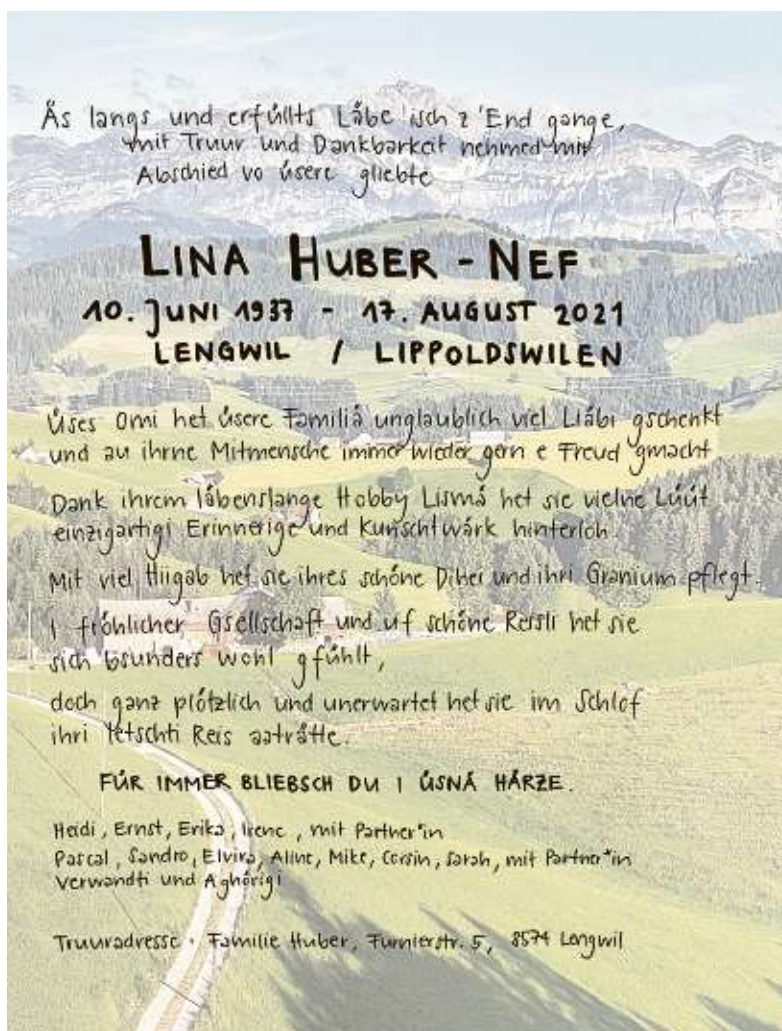 Äs langs und erfüllts Läbe isch z'End gange,
mit Truur und Dankbarkeit nehmed mir
Abschied vo üsere gliebte
LINA HUBER-NEF
10. JUNI 1937 - 17. AUGUST 2021
LENGWIL / LIPPOLDSWILEN
Üses Omi het üsere Familiä unglaublich viel Liäbi gschenkt
und au ihrne Mitmensche immer wieder gern e Freud gmacht
Dank ihrem läbenslange Hobby Lismä het sie vielne Lüüt
einzigartigi Erinnerige und Kunschtwärk hinterloh.
Mit viel Hiigab het sie ihres schöne Dihei und ihri Granium pflegt.
I fröhlicher Gsellschaft und uf schöne Reisli het sie
sich bsunders wohl gfühlt,
doch ganz plötzlich und unerwartet het sie im Schlof
ihri letschti Reis aaträtte.
FÜR IMMER BLIEBSCH DU I ÜSNÄ HÄRZE.
Heidi, Ernst, Erika, Irene, mit Partner*in
Pascal, Sandro, Elvira, Aline, Mike, Corsin, Sarah, mit Partner*in
Verwandti und Aghörigi
Truuradresse: Familie Huber, Furnierstr. 5, 8574 Lengwil